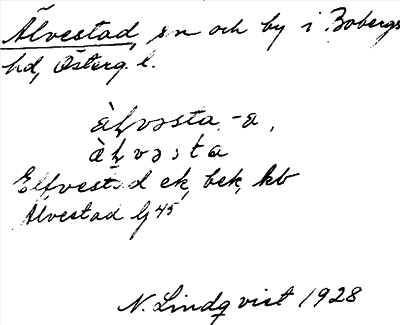 Älvestad, sn och by i Bobergs
hd, Österg. l.
àḷvəsta, -a,
àḷvəsta
Elfvestad ek, bek, kb
Älvestad Lj 45
N. Lindqvist 1928